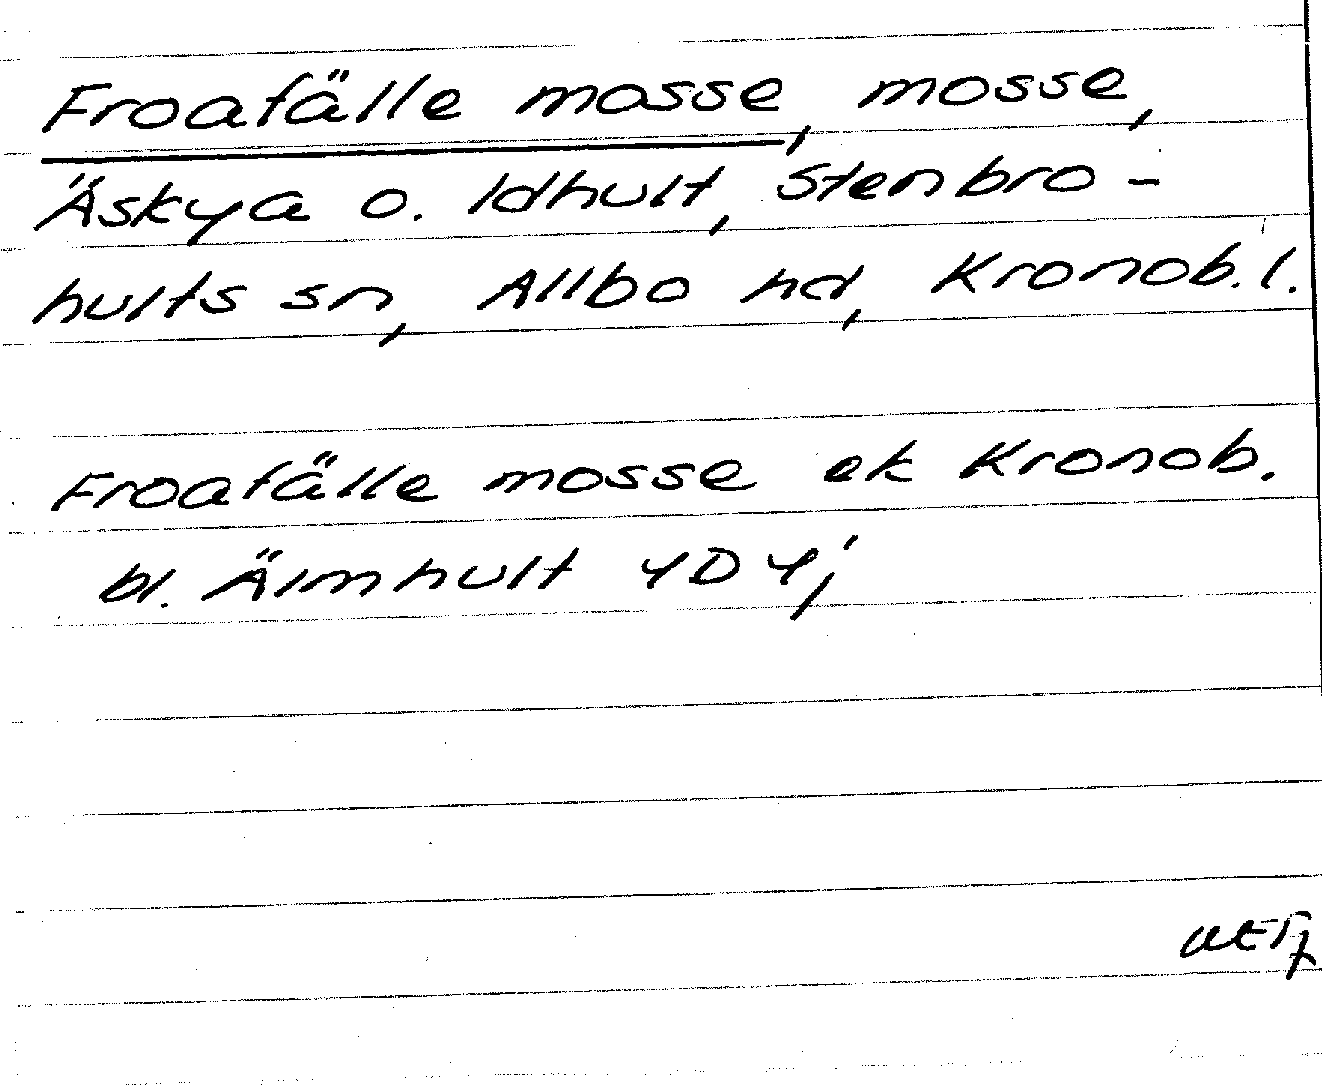 Froafälle mosse, mosse,
Äskya o. Idhult, Stenbro-
hults sn, Allbo hd, Kronob. l.
Froafälle mosse ek Kronob.
bl. Älmhult 4D4j